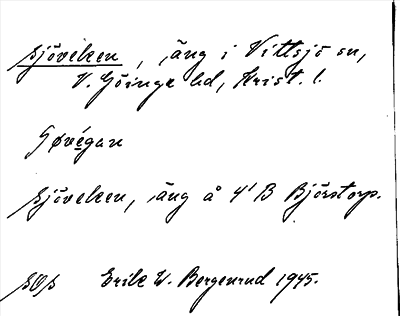 Sjöveken, äng i Vittsjö sn,
V. Göinge hd, Krist. l.
Sjöveken, äng å 4¹ B Björstorp.
Erik W. Bergenrud 1945.